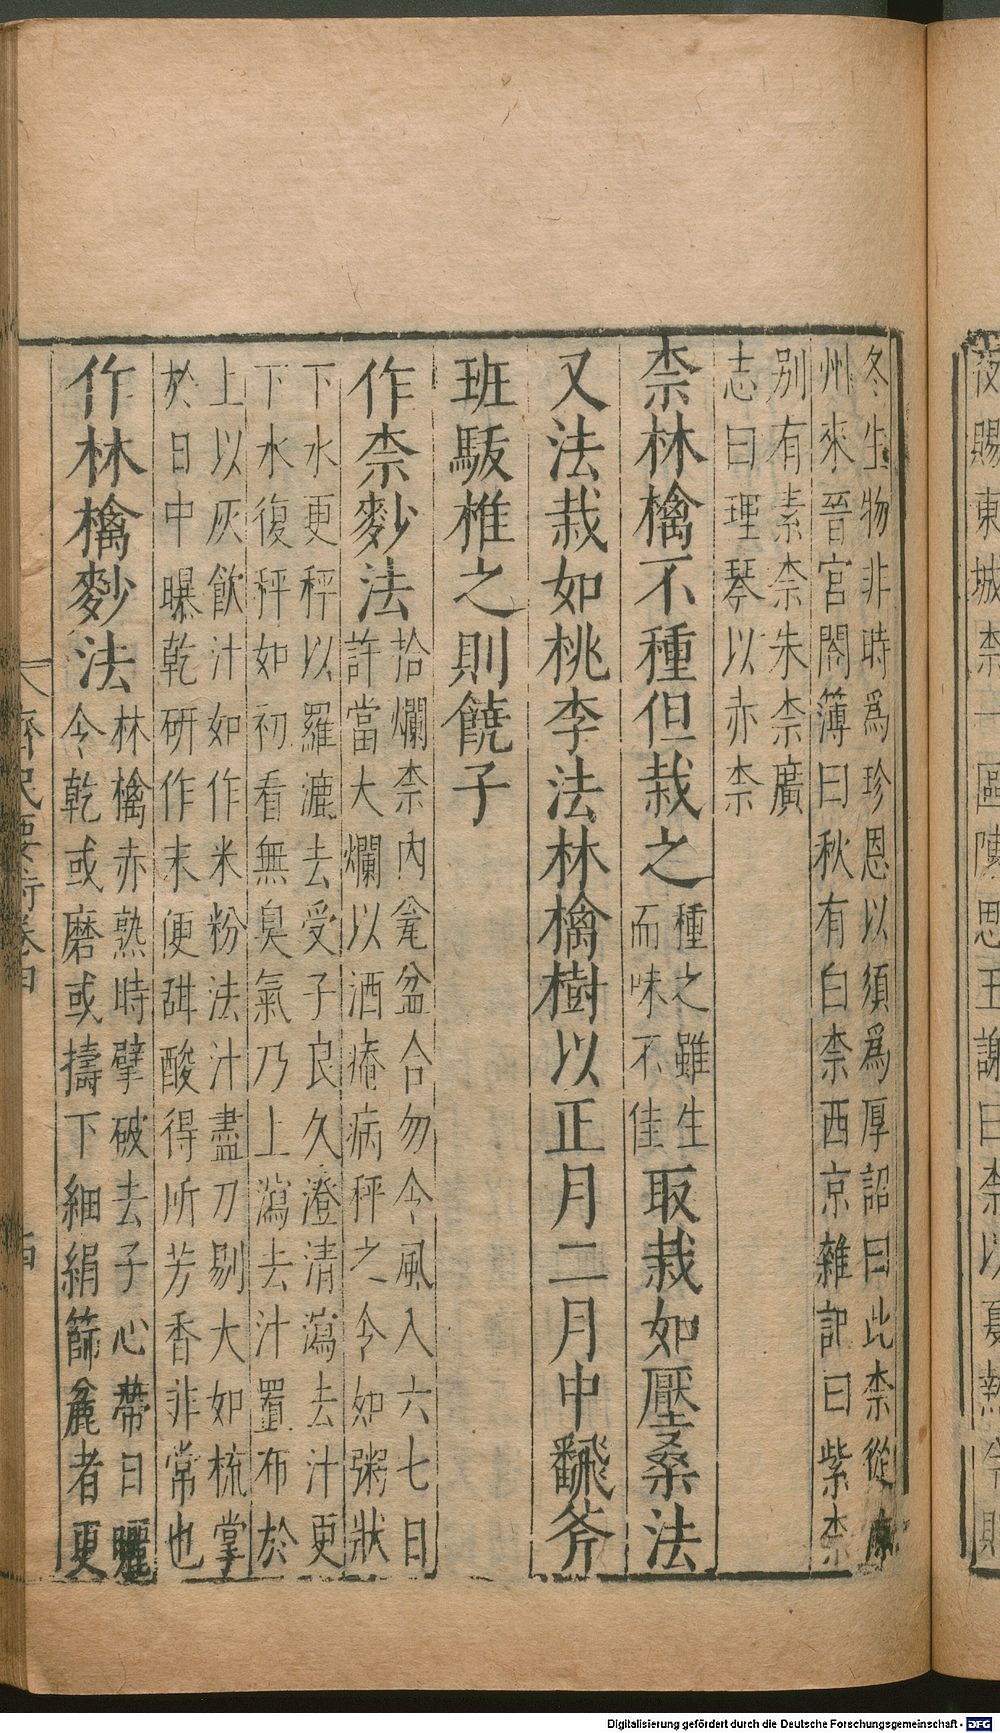 冬生物非時爲珍恩以須爲厚詔曰此柰從
州來晉宮閣簿曰秋有白柰西京雜記曰紫柰
別有素柰朱柰廣
志曰理琴以赤柰
柰林檎不種但栽之
種之雖生
而味不佳
取栽如壓桑法
又法栽如桃李法林檎樹以正月二月中飜斧
班駮椎之則饒子
作柰麨法
拾爛柰內瓮盆合勿令風入六七日
許當大爛以酒痷病秤之令如粥狀
下水更秤以羅漉去受子良久澄清瀉去汁更
下水復秤如初看無臭氣乃上瀉去汁置布於
上以灰飲汁如作米粉法汁盡刀剔大如梳掌
於日中曝乾研作末便甜酸得所芳香非常也
作林檎麨法
林檎赤熟時擘破去子心帶日曬
令乾或磨或擣下細絹篩麁者更
齊民要術卷四
Digitalisierung gefördert durch die Deutsche Forschungsgemeinschaft - DFG